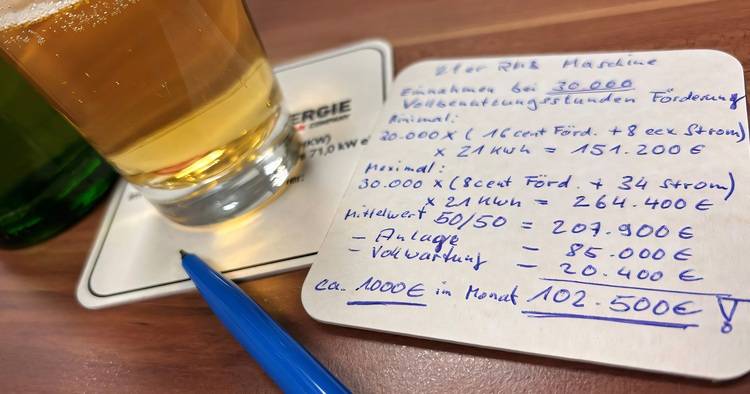 ERGIE
COMPANY
KW)
71,0 kW e
21er RMB Maschine
Einnahmen bei 30.000
Vollbenutzungsstunden Förderung
Minimal:
30.000 x ( 16 cent Förd. + 8 eex Strom)
x 21 kWh = 151.200 €
Maximal:
30.000 x (8cent Förd. + 34 Strom)
x 21 kWh = 264.400 €
Mittelwert 50/50 = 207.900 €
- Anlage - 85.000 €
- Vollwartung - 20.400 €
ca. 1000€ in Monat 102.500€ !